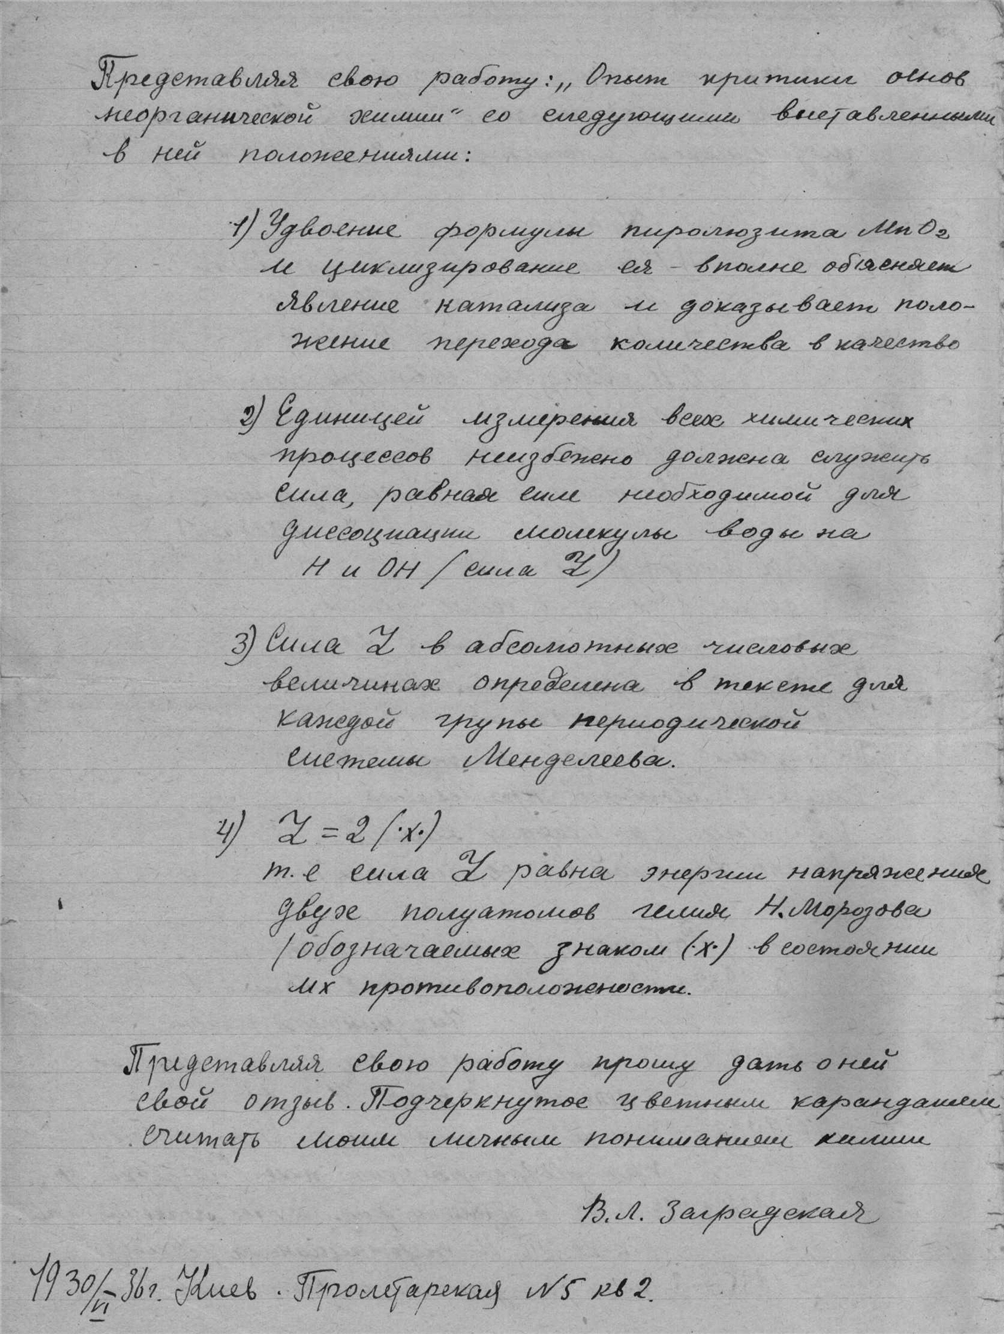 Представляя свою работу: „Опыт критики основ
неорганической химии" со следующими выставленными
в ней положениями:
1) Удвоение формулы пиролюзита MnO2
и циклизирование ея - вполне объясняет
явление катализа и доказывает поло-
жение перехода количества в качество
2) Единицей измерения всех химических
процессов неизбежно должна служить
сила, равная силе необходимой для
диссоциации молекулы воды на
H и OH (сила Z)
3) Сила Z в абсолютных числовых
величинах определена в тексте для
каждой групы периодической
системы Менделеева.
4) Z = 2 (·x·)
т.е сила Z равна энергии напряжения
двух полуатомов гелия Н. Морозова
(обозначаемых знаком (·x·) в состоянии
их противоположности.
Представляя свою работу прошу дать о ней
свой отзыв. Подчеркнутое цветным карандашем
считать моим личным пониманием химии
В. Л. Заградская
19 30/VI 36 г. Киев. Пролетарская N 5 кв 2.